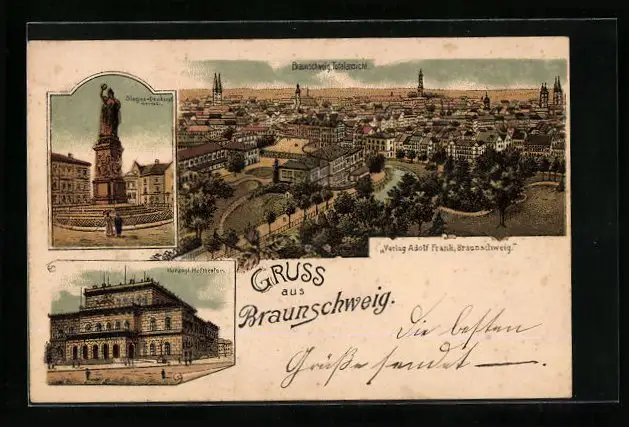 Braunschweig, Totalansicht.
Sieges-Denkmal
"Verlag Adolf Frank, Braunschweig."
Herzogl. Hoftheater.
GRUSS
aus
Braunschweig.
Die besten
Grüße sendet —